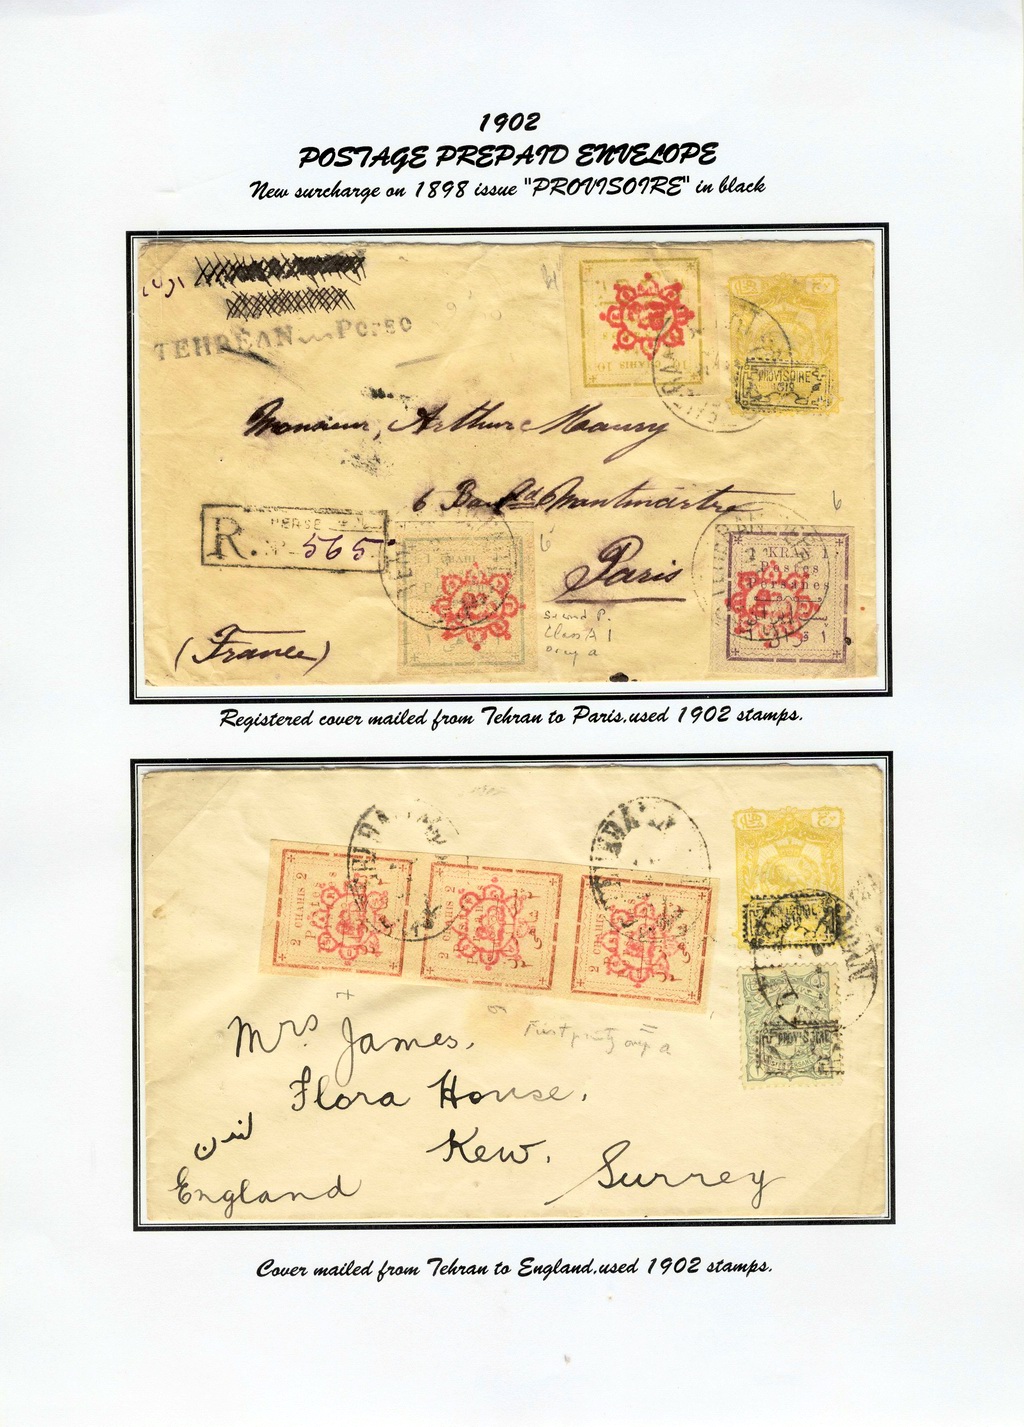 1902
POSTAGE PREPAID ENVELOPE
New surcharge on 1898 issue "PROVISOIRE" in black
TEHREAN
Monsieur, Arthur Maury
6 Montmartre
R. 565
Paris
(France)
1 KRAN 1
Postes
Persanes
CHAHIS 10
PROVISOIRE
1319
Second P.
Class A 1
only a
Registered cover mailed from Tehran to Paris.used 1902 stamps.
2 CHAHIS 2
2 CHAHIS 2
2 CHAHIS 2
PROVISOIRE
1319
PROVISOIRE
only a
Mrs James.
Flora House.
Kew.
Surrey
لندن
England
Cover mailed from Tehran to England.used 1902 stamps.